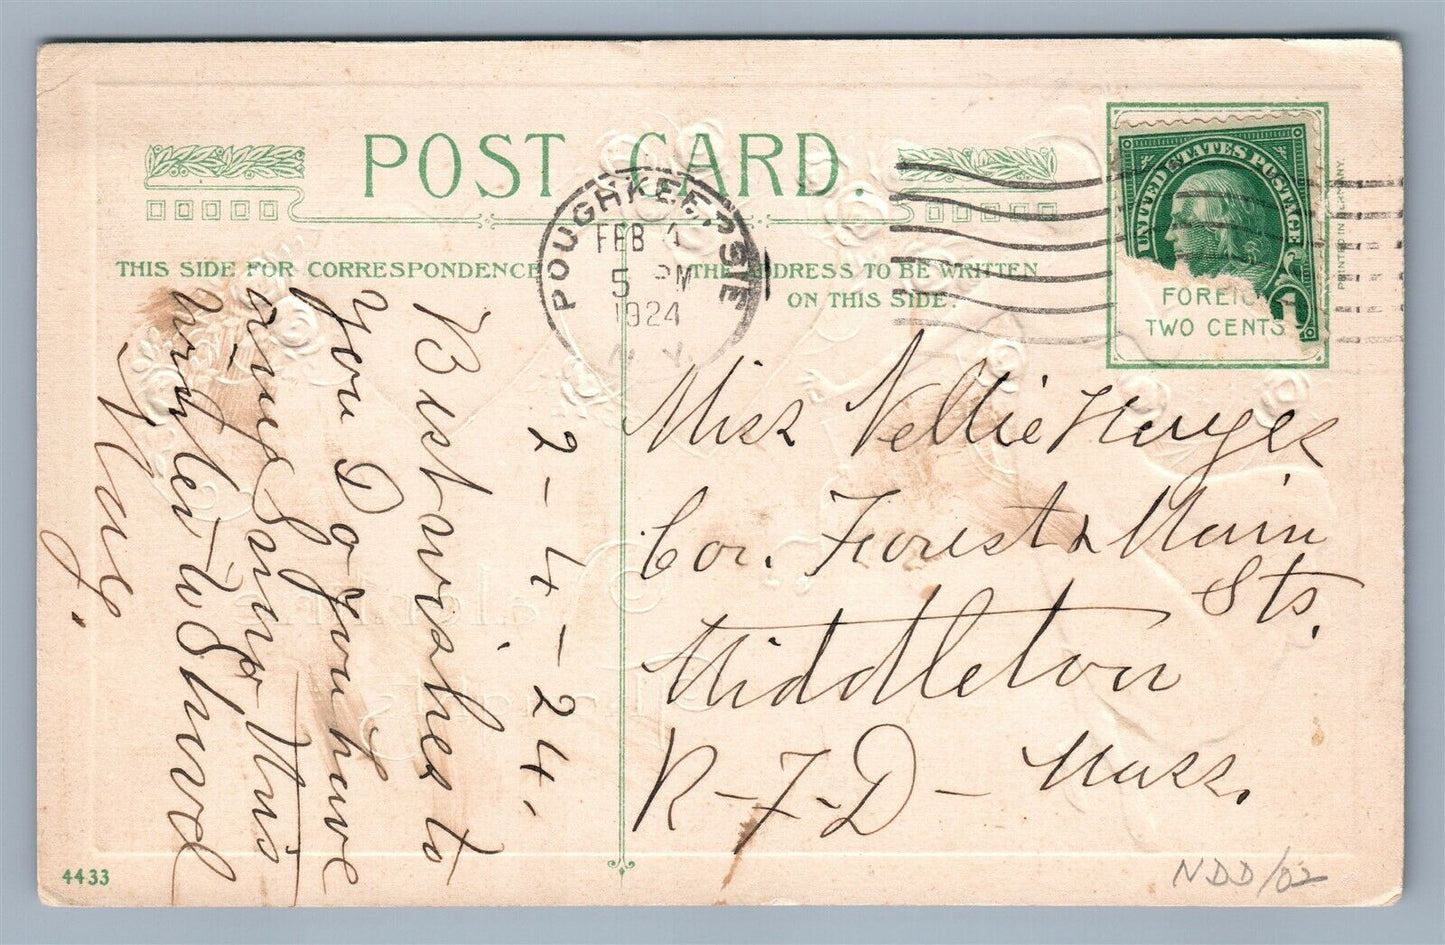 POST CARD.
POUGHKEEPSIE
FEB 4
5 PM
1924
N. Y.
THIS SIDE FOR CORRESPONDENCE
THE ADDRESS TO BE WRITTEN
ON THIS SIDE
UNITED STATES POSTAGE
FOREIGN
TWO CENTS
PRINTED IN GERMANY.
2-4-24.
Best wishes to
you Do you have
any Snow this
winter W S Hurd
Mary.
Miss Nellie
Cor. Forest & Main
Sts.
Middleton
R-F-D- Mass.
4433
NDD/02